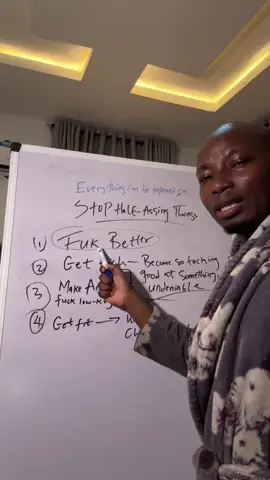 Everything can be improved on
Stop Half-Assing Things
1) Fuk Better
2) Get — Become so fucking
good at something
undeniable
3) Make
fuck low-k
4) Get fit →